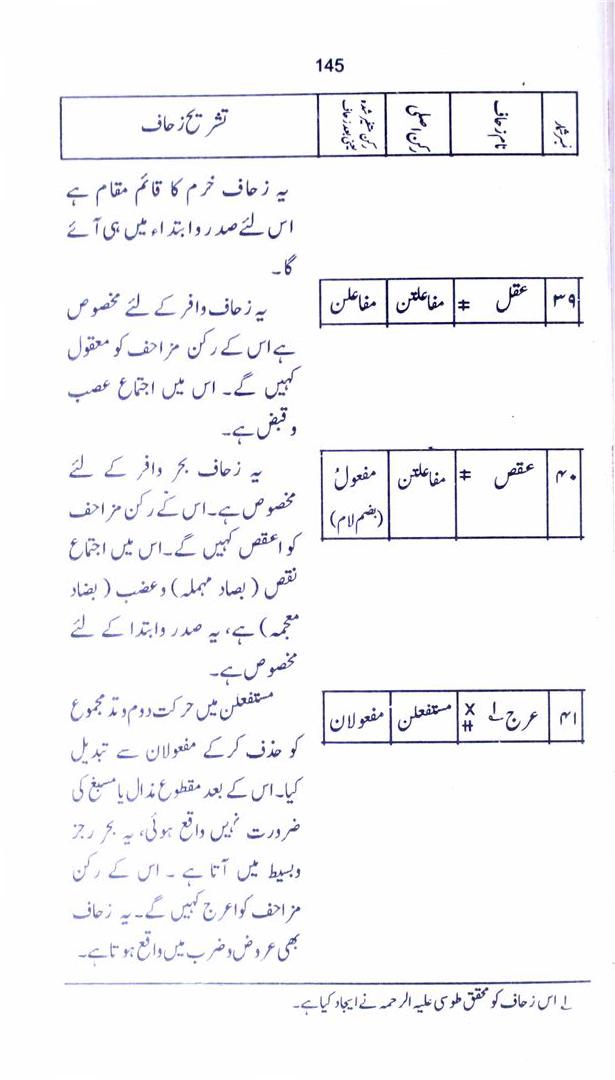 145
نمبر شمار | نام زحاف | رکن اصلی | رکن متغیر شدہ یعنی بعد زحاف | تشریح زحاف
یہ زحاف خرم کا قائم مقام ہے
اس لئے صدر و ابتداء میں ہی آئے
گا۔
۳۹ | عقل ⧧ | مفاعلتن | مفاعلن
یہ زحاف وافر کے لئے مخصوص
ہے اس کے رکن مزاحف کو معقول
کہیں گے۔ اس میں اجتماع عصب
و قبض ہے۔
۴۰ | عقص ⧧ | مفاعلتن | مفعولُ
(بضم لام)
یہ زحاف بحر وافر کے لئے
مخصوص ہے۔ اس کے رکن مزاحف
کو اعقص کہیں گے۔ اس میں اجتماع
نقص (بصاد مہملہ) و عضب (بضاد
معجمہ) ہے، یہ صدر و ابتدا کے لئے
مخصوص ہے۔
۴۱ | عرج ۱؎ X # | مستفعلن | مفعولان
مستفعلن میں حرکت دوم وتد مجموع
کو حذف کر کے مفعولان سے تبدیل
کیا۔ اس کے بعد مقطوع مذال یا مسبغ کی
ضرورت نہیں واقع ہوئی، یہ بحر رجز
وبسیط میں آتا ہے ۔ اس کے رکن
مزاحف کو اعرج کہیں گے۔ یہ زحاف
بھی عروض و ضرب میں واقع ہوتا ہے۔
۱؎ اس زحاف کو محقق طوسی علیہ الرحمہ نے ایجاد کیا ہے۔